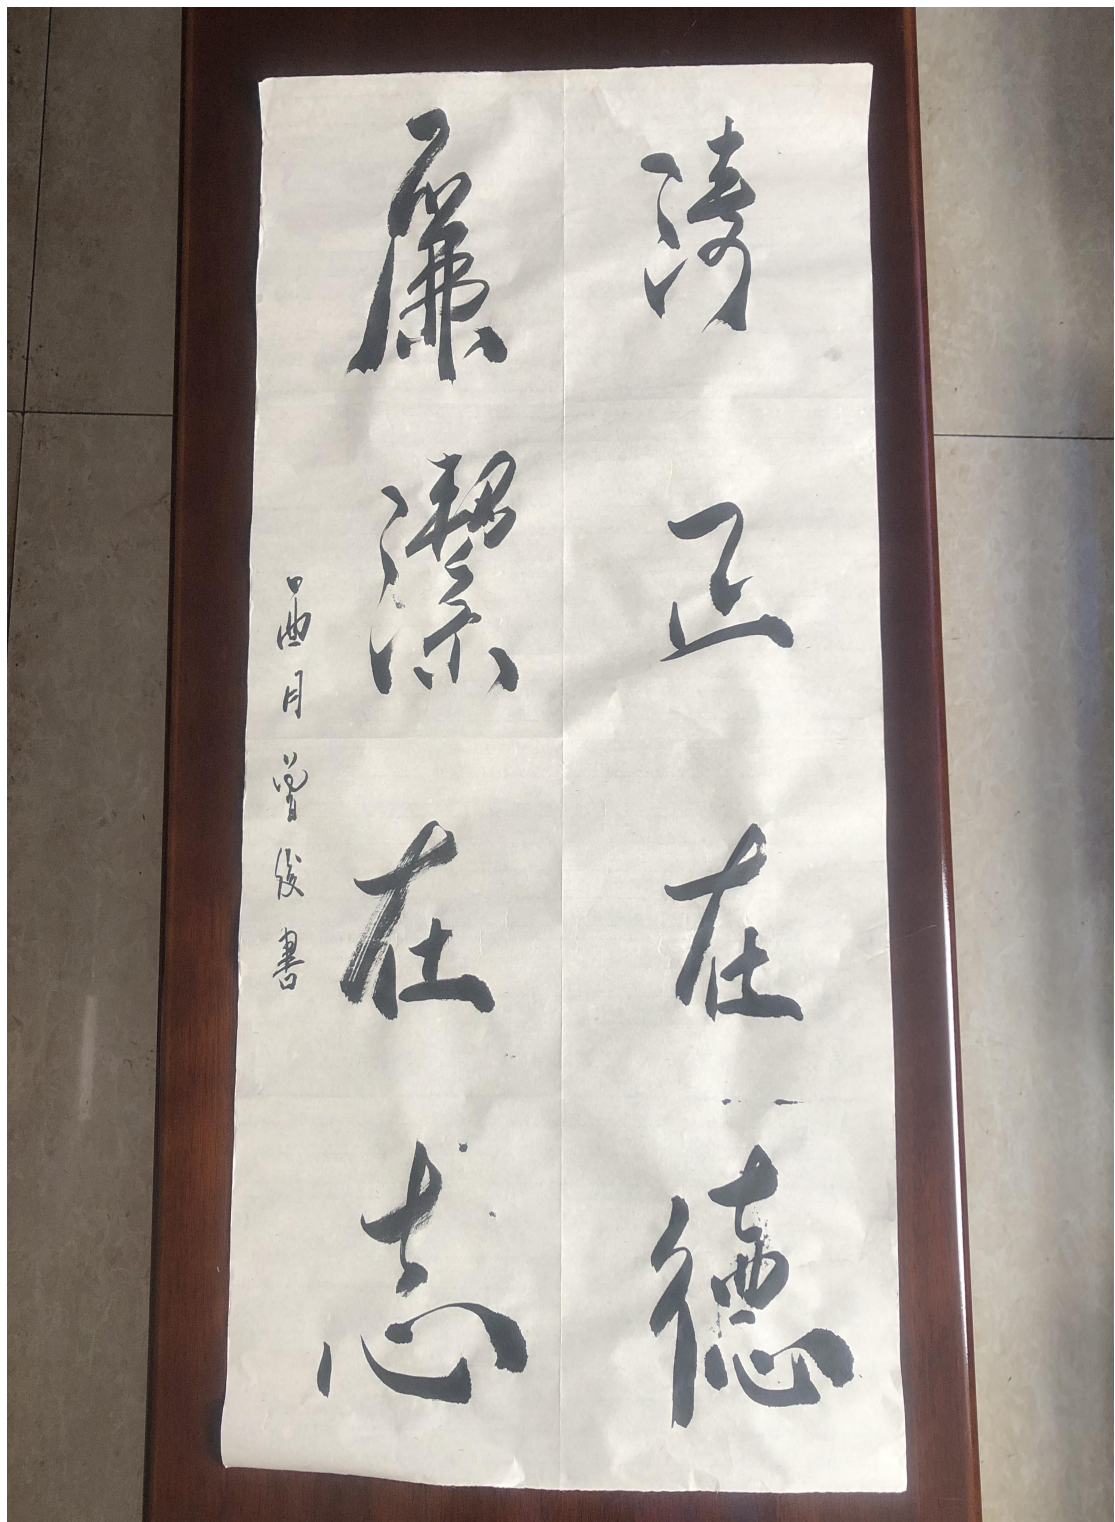 清正在德
廉潔在志
酉月曾俊書